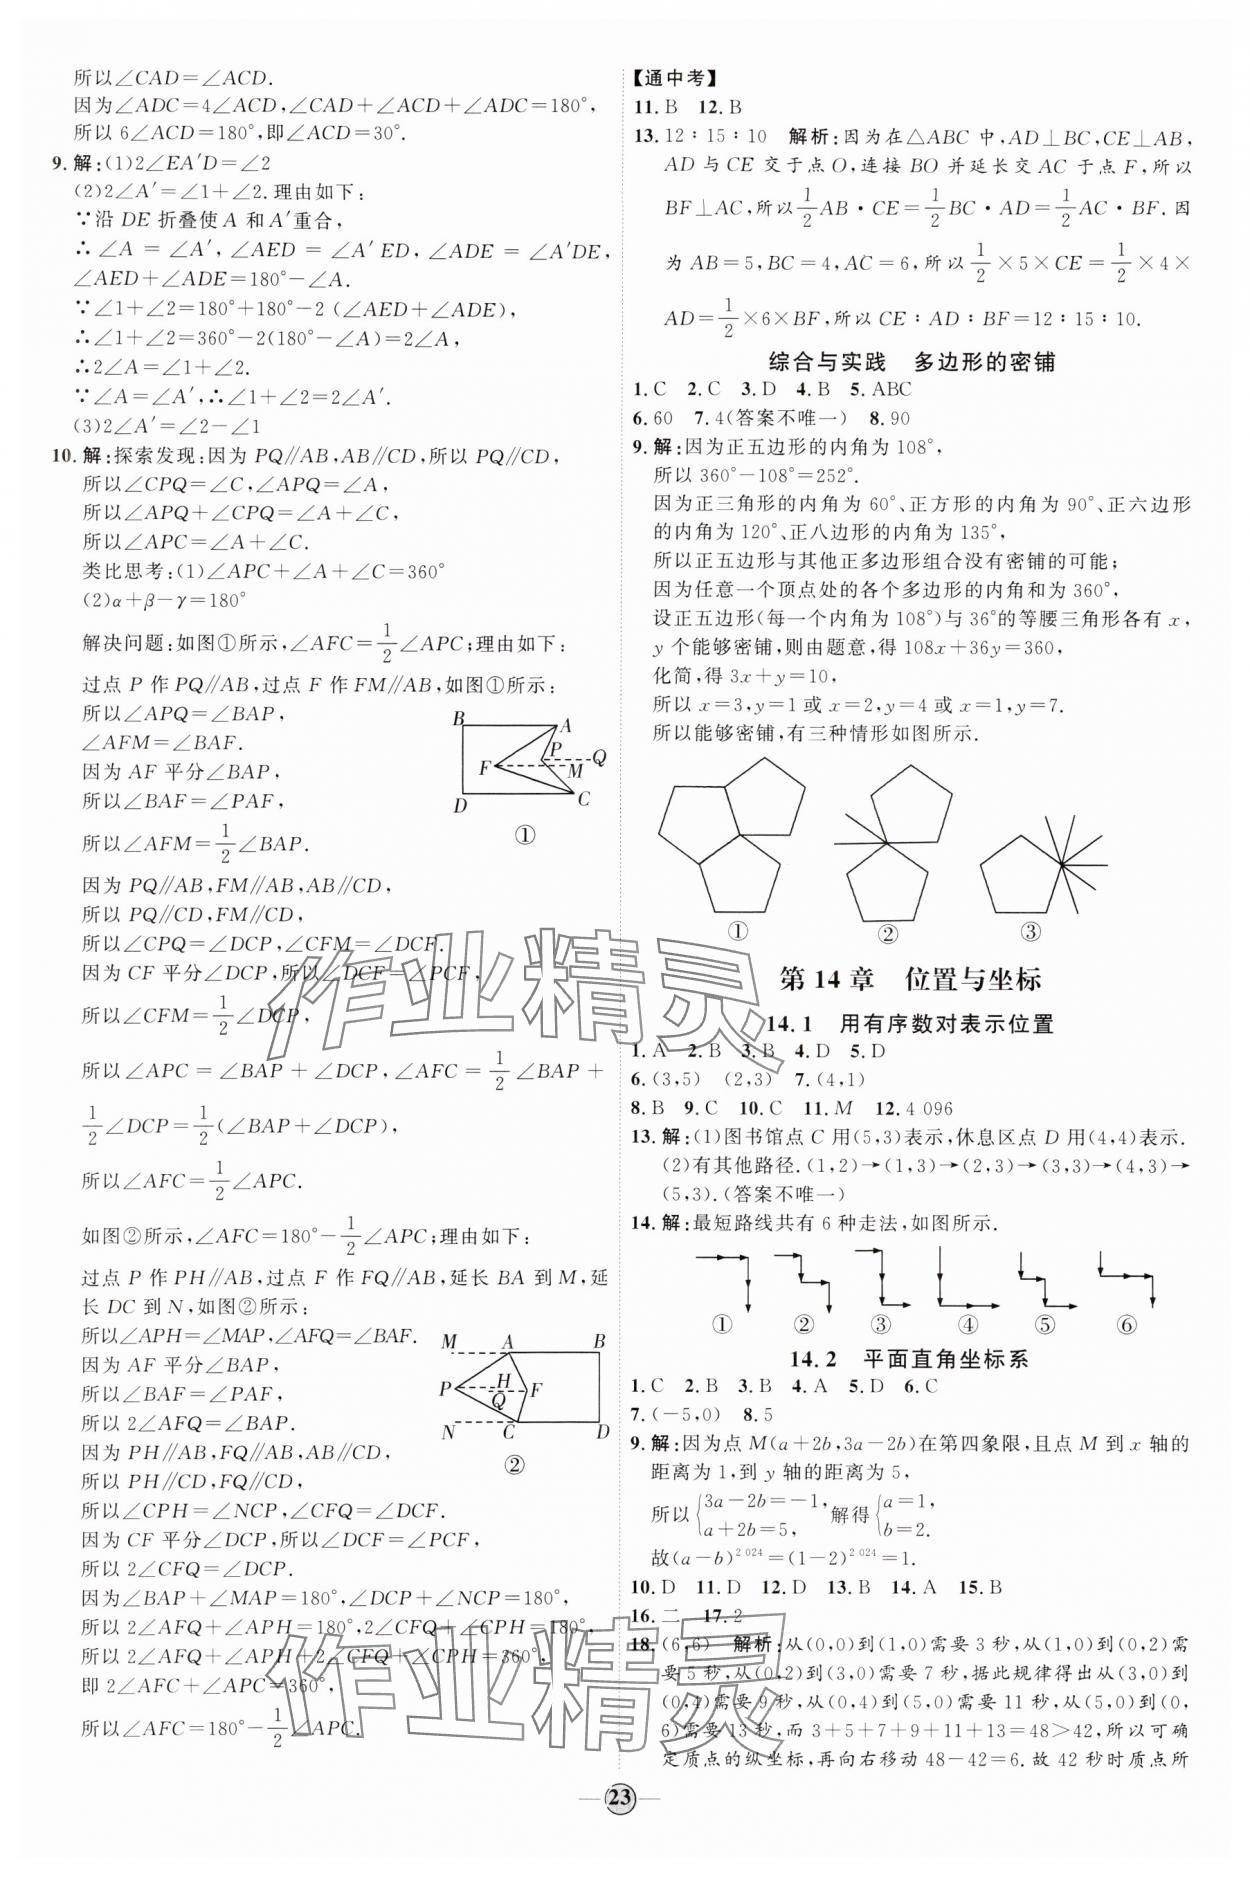 所以∠CAD=∠ACD.
因为∠ADC=4∠ACD,∠CAD+∠ACD+∠ADC=180°,
所以 6∠ACD=180°,即∠ACD=30°.
9. 解:(1)2∠EA′D=∠2
(2)2∠A′=∠1+∠2.理由如下:
∵沿 DE 折叠使 A 和 A′重合,
∴∠A=∠A′,∠AED=∠A′ED,∠ADE=∠A′DE,
∠AED+∠ADE=180°-∠A.
∵∠1+∠2=180°+180°-2(∠AED+∠ADE),
∴∠1+∠2=360°-2(180°-∠A)=2∠A,
∴2∠A=∠1+∠2.
∵∠A=∠A′,∴∠1+∠2=2∠A′.
(3)2∠A′=∠2-∠1
10. 解:探索发现:因为 PQ∥AB,AB∥CD,所以 PQ∥CD,
所以∠CPQ=∠C,∠APQ=∠A,
所以∠APQ+∠CPQ=∠A+∠C,
所以∠APC=∠A+∠C.
类比思考:(1)∠APC+∠A+∠C=360°
(2)α+β-γ=180°
解决问题:如图①所示,∠AFC=1/2∠APC;理由如下:
过点 P 作 PQ∥AB,过点 F 作 FM∥AB,如图①所示:
所以∠APQ=∠BAP,
∠AFM=∠BAF.
因为 AF 平分∠BAP,
所以∠BAF=∠PAF,
所以∠AFM=1/2∠BAP.
B A P Q F M D C
①
因为 PQ∥AB,FM∥AB,AB∥CD,
所以 PQ∥CD,FM∥CD,
所以∠CPQ=∠DCP,∠CFM=∠DCF.
因为 CF 平分∠DCP,所以∠DCF=∠PCF,
所以∠CFM=1/2∠DCP,
所以∠APC=∠BAP+∠DCP,∠AFC=1/2∠BAP+
1/2∠DCP=1/2(∠BAP+∠DCP),
所以∠AFC=1/2∠APC.
如图②所示,∠AFC=180°-1/2∠APC;理由如下:
过点 P 作 PH∥AB,过点 F 作 FQ∥AB,延长 BA 到 M,延
长 DC 到 N,如图②所示:
所以∠APH=∠MAP,∠AFQ=∠BAF.
因为 AF 平分∠BAP,
所以∠BAF=∠PAF,
所以 2∠AFQ=∠BAP.
因为 PH∥AB,FQ∥AB,AB∥CD,
所以 PH∥CD,FQ∥CD,
M A B H P F Q N C D
②
所以∠CPH=∠NCP,∠CFQ=∠DCF.
因为 CF 平分∠DCP,所以∠DCF=∠PCF,
所以 2∠CFQ=∠DCP.
因为∠BAP+∠MAP=180°,∠DCP+∠NCP=180°,
所以 2∠AFQ+∠APH=180°,2∠CFQ+∠CPH=180°,
所以 2∠AFQ+∠APH+2∠CFQ+∠CPH=360°,
即 2∠AFC+∠APC=360°,
所以∠AFC=180°-1/2∠APC.
【通中考】
11. B 12. B
13. 12∶15∶10 解析:因为在△ABC 中,AD⊥BC,CE⊥AB,
AD 与 CE 交于点 O,连接 BO 并延长交 AC 于点 F,所以
BF⊥AC,所以1/2AB·CE=1/2BC·AD=1/2AC·BF.因
为 AB=5,BC=4,AC=6,所以1/2×5×CE=1/2×4×
AD=1/2×6×BF,所以 CE∶AD∶BF=12∶15∶10.
综合与实践 多边形的密铺
1. C 2. C 3. D 4. B 5. ABC
6. 60 7. 4(答案不唯一) 8. 90
9. 解:因为正五边形的内角为 108°,
所以 360°-108°=252°.
因为正三角形的内角为 60°、正方形的内角为 90°、正六边形
的内角为 120°、正八边形的内角为 135°,
所以正五边形与其他正多边形组合没有密铺的可能;
因为任意一个顶点处的各个多边形的内角和为 360°,
设正五边形(每一个内角为 108°)与 36°的等腰三角形各有 x,
y 个能够密铺,则由题意,得 108x+36y=360,
化简,得 3x+y=10,
所以 x=3,y=1 或 x=2,y=4 或 x=1,y=7.
所以能够密铺,有三种情形如图所示.
① ② ③
第 14 章 位置与坐标
14.1 用有序数对表示位置
1. A 2. B 3. B 4. D 5. D
6. (3,5) (2,3) 7. (4,1)
8. B 9. C 10. C 11. M 12. 4 096
13. 解:(1)图书馆点 C 用(5,3)表示,休息区点 D 用(4,4)表示.
(2)有其他路径.(1,2)→(1,3)→(2,3)→(3,3)→(4,3)→
(5,3).(答案不唯一)
14. 解:最短路线共有 6 种走法,如图所示.
① ② ③ ④ ⑤ ⑥
14.2 平面直角坐标系
1. C 2. B 3. B 4. A 5. D 6. C
7. (-5,0) 8. 5
9. 解:因为点 M(a+2b,3a-2b)在第四象限,且点 M 到 x 轴的
距离为 1,到 y 轴的距离为 5,
所以{3a-2b=-1, a+2b=5, 解得{a=1, b=2.
故(a-b)²⁰²⁴=(1-2)²⁰²⁴=1.
10. D 11. D 12. D 13. B 14. A 15. B
16. 二 17. 2
18. (6,6) 解析:从(0,0)到(1,0)需要 3 秒,从(1,0)到(0,2)需
要 5 秒,从(0,2)到(3,0)需要 7 秒,据此规律得出从(3,0)到
(0,4)需要 9 秒,从(0,4)到(5,0)需要 11 秒,从(5,0)到(0,
6)需要 13 秒,而 3+5+7+9+11+13=48>42,所以可确
定质点的纵坐标,再向右移动 48-42=6.故 42 秒时质点所
23
作业精灵
作业精灵